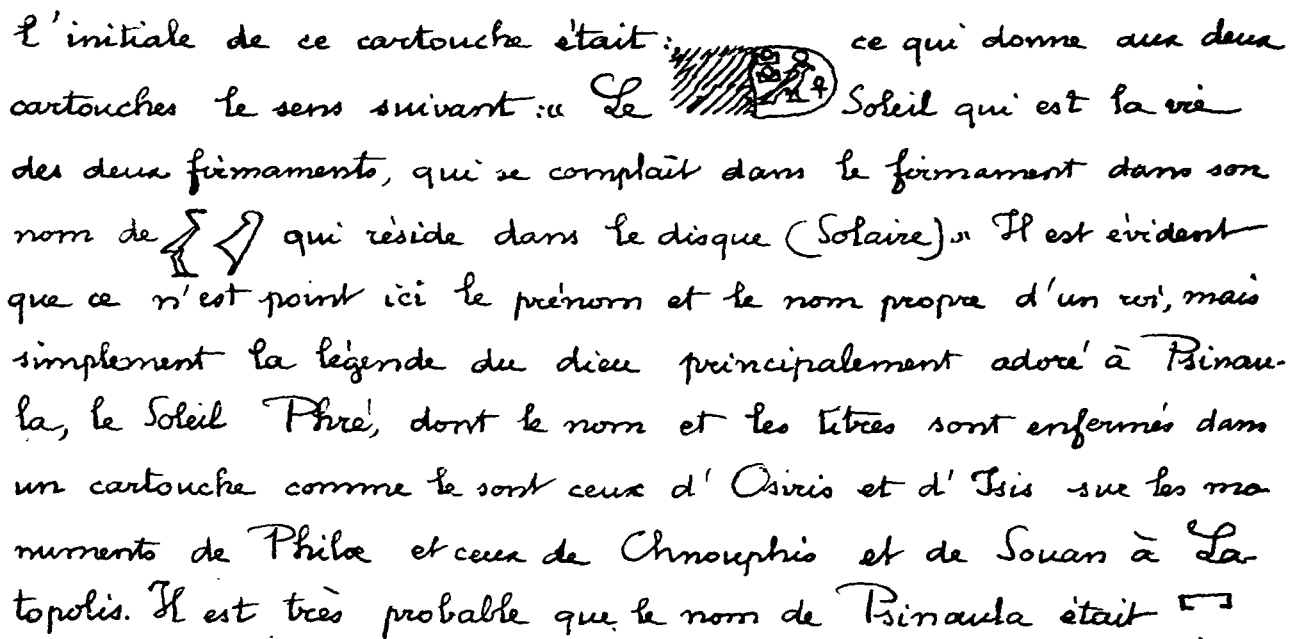 l'initiale de ce cartouche était : ce qui donne aux deux
cartouches le sens suivant : « Le Soleil qui est la vie
des deux firmaments, qui se complaît dans le firmament dans son
nom de qui réside dans le disque (Solaire). » Il est évident
que ce n'est point ici le prénom et le nom propre d'un roi, mais
simplement la légende du dieu principalement adoré à Psinau-
la, le Soleil Phré, dont le nom et les titres sont enfermés dans
un cartouche comme le sont ceux d'Osiris et d'Isis sur les mo
numents de Philæ et ceux de Chnouphis et de Souan à La-
topolis. Il est très probable que le nom de Psinaula était